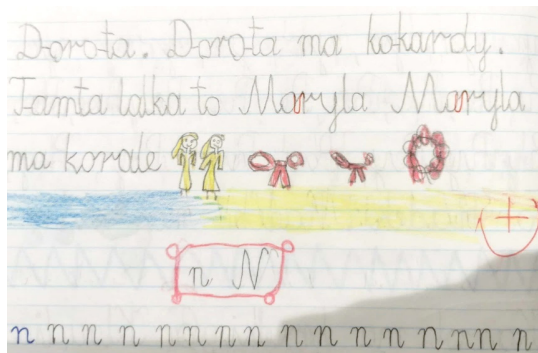 Dorota. Dorota ma kokardy.
Tamta lalka to Maryla Maryla
ma korale
n N
n n n n n n n n n n n n n n n n